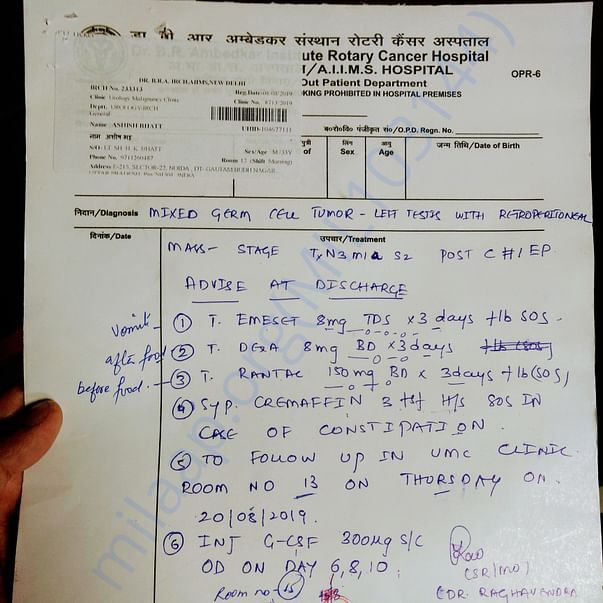 डा बी आर अम्बेडकर संस्थान रोटरी कैंसर अस्पताल
Dr. B.R. Ambedkar Institute Rotary Cancer Hospital
A.I.I.M.S. HOSPITAL
OPR-6
Out Patient Department
SMOKING PROHIBITED IN HOSPITAL PREMISES
DR. B.R.A. IRCH, AIIMS, NEW DELHI
IRCH No. 233313
Clinic Urology Malignancy Clinic
Deptt. UROLOGY-IRCH
General
Name : ASHISH BHATT
UHID-104677111
S/O LT SH. H. K. BHATT
Sex/Age M/33Y
Phone No. 9711260487
Room 13 (Shift Morning)
Address E-213, SECTOR-22, NOIDA , DT- GAUTAM BUDH NAGAR,
UTTAR PRADESH, INDIA
ब०रो०वि० पंजीकृत सं०/O.P.D. Regn. No.
लिंग
Sex
आयु
Age
जन्म तिथि/Date of Birth
निदान/Diagnosis MIXED GERM CELL TUMOR - LEFT TESTIS WITH RETROPERITONEAL
दिनांक/Date
उपचार/Treatment
MASS - STAGE TxN3M1a S2 POST C#1 EP.
ADVISE AT DISCHARGE
① T. EMESET 8mg TDS x 3 days +1b SOS.
after food ② T. DEXA 8mg BD x 3 days
before food. ③ T. RANTAC 150mg BD x 3 days +1b (SOS)
④ Syp. CREMAFFIN 3 tsf H/S SOS IN
CASE OF CONSTIPATION.
⑤ TO FOLLOW UP IN UMC CLINIC
ROOM NO 13 ON THURSDAY ON
20/08/2019.
⑥ INJ G-CSF 300µg S/C
OD ON DAY 6,8,10.
(SR/MO)
Room no - 15
(DR. RAGHAVENDRA
milaap.org